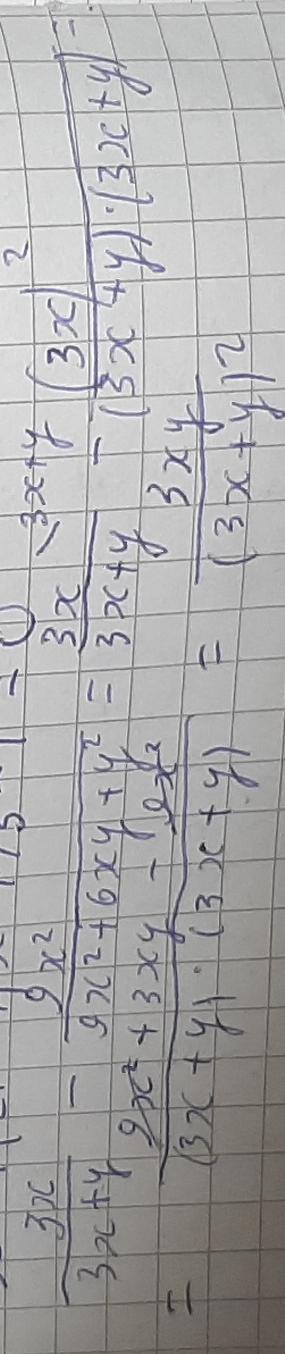 3x/(3x+y) - 9x²/(9x²+6xy+y²) = 3x\3x+y/(3x+y) - (3x)²/((3x+y)·(3x+y)) =
= (9x²+3xy-9x²)/((3x+y)·(3x+y)) = 3xy/(3x+y)²